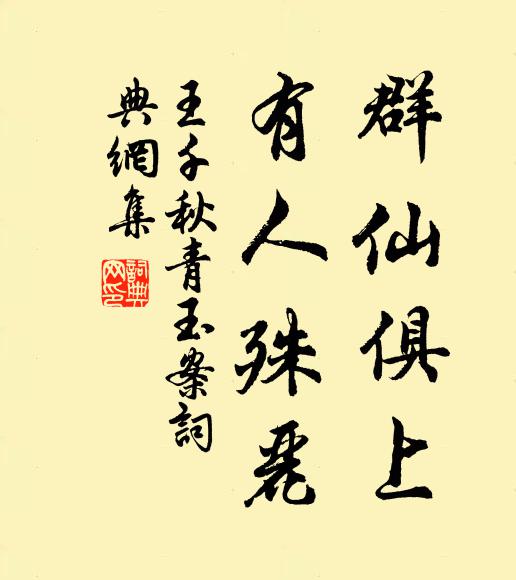 群仙俱上
有人殊麗
王千秋青玉案詞
典網集
詞典網印